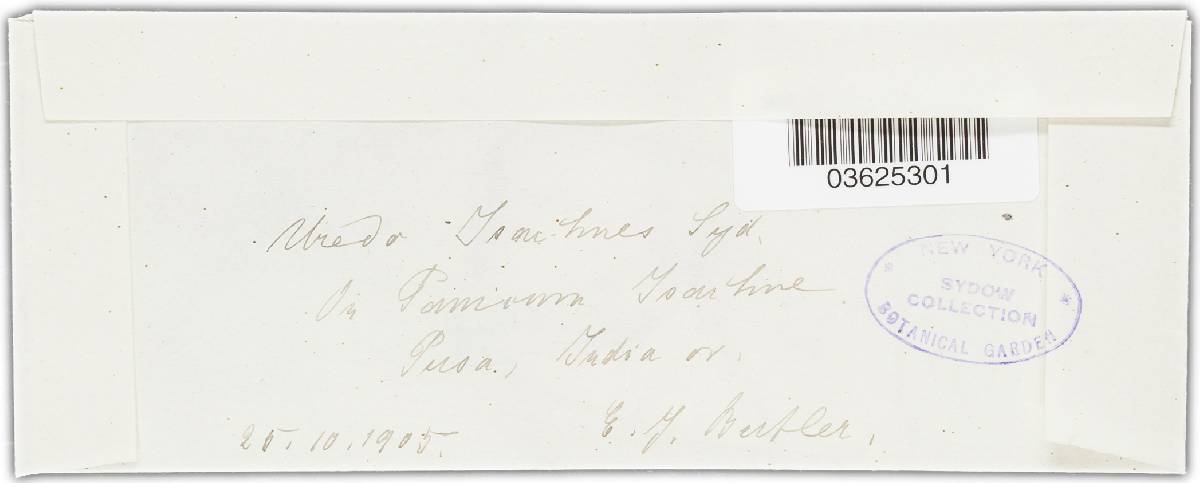 03625301
Uredo Isachnes Syd.
On Panicum Isachne
Pusa, India or.
25.10.1905. E. J. Butler.
* NEW YORK *
SYDOW
COLLECTION
BOTANICAL GARDEN